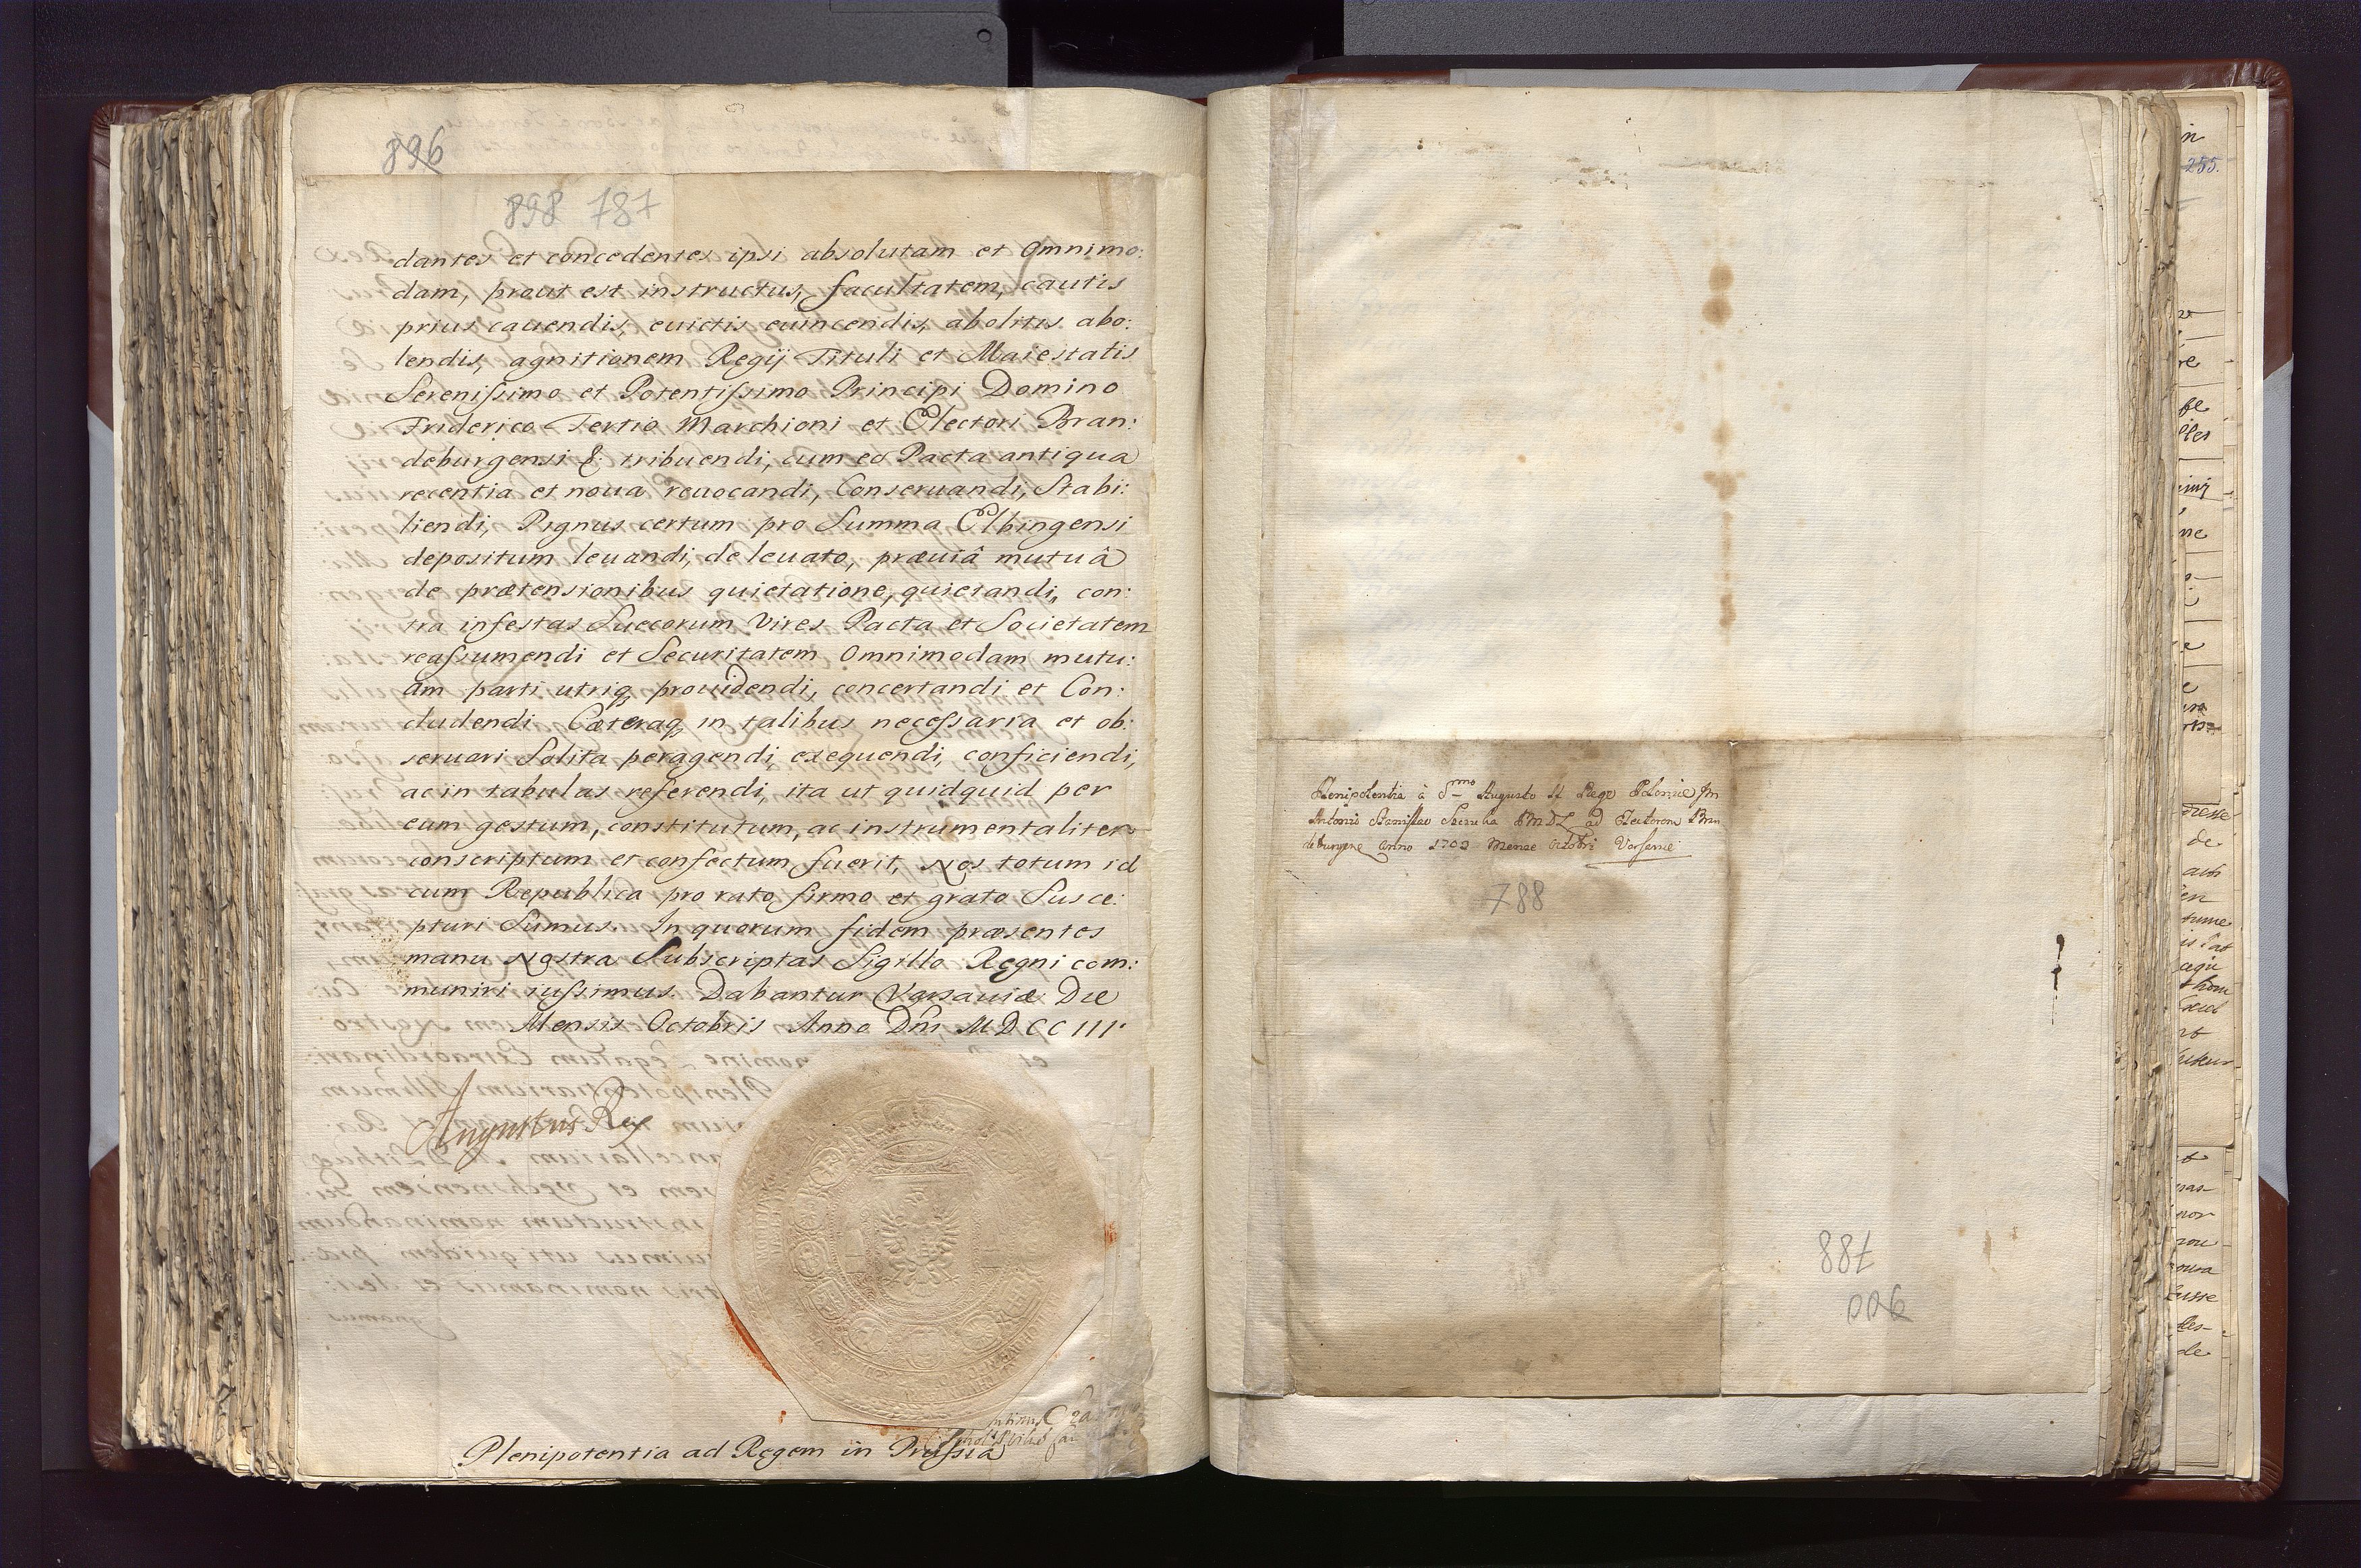 896
898 787
dantes et concedentes ipsi absolutam et Omnimo:
dam, prout est instructus, facultatem, cautis
prius cauendis, euictis euincendis, abolitis abo:
lendis, agnitionem Regij Tituli et Maiestatis
Serenissimo et Potentissimo Principi Domino
Friderico Tertio Marchioni et Electori Bran:
deburgensi &. tribuendi, cum eo Pacta antiqua
recentia et noua reuocandi, Conseruandi, Stabi:
liendi, Pignus certum pro Summa Elbingensi
depositum leuandi, de leuato, præuiâ mutuâ
de prætensionibus quietatione, quietandi, con:
tra infestas Suecorum Vires Pacta et Societatem
reassumendi et Securitatem Omnimodam mutu:
am parti utriq prouidendi, concertandi et Con:
cludendi Cæteraq in talibus necessaria et ob:
seruari Solita peragendi, exequendi, conficiendi,
ac in tabulas referendi, ita ut quidquid per
eum gestum, constitutum, ac instrumentaliter
conscriptum et confectum fuerit, Nos totum id
cum Republica pro rato firmo et grato Susce:
pturi Sumus. In quorum fidem præsentes
manu Nostra Subscriptas Sigillo Regni com:
muniri iussimus. Dabantur Varsauiæ Die
Mensis Octobris Anno Dni MDCCIII.
Augustus Rex
Plenipotentia ad Regem in Prussia
Plenipotentia à Smo Augusto II Rege Poloniæ
Antonio Stanislao Szczuka PMDL ad Electorem Bran
deburgiæ Anno 1703 Mense Octobri Varsaviæ
788
788
900
255.